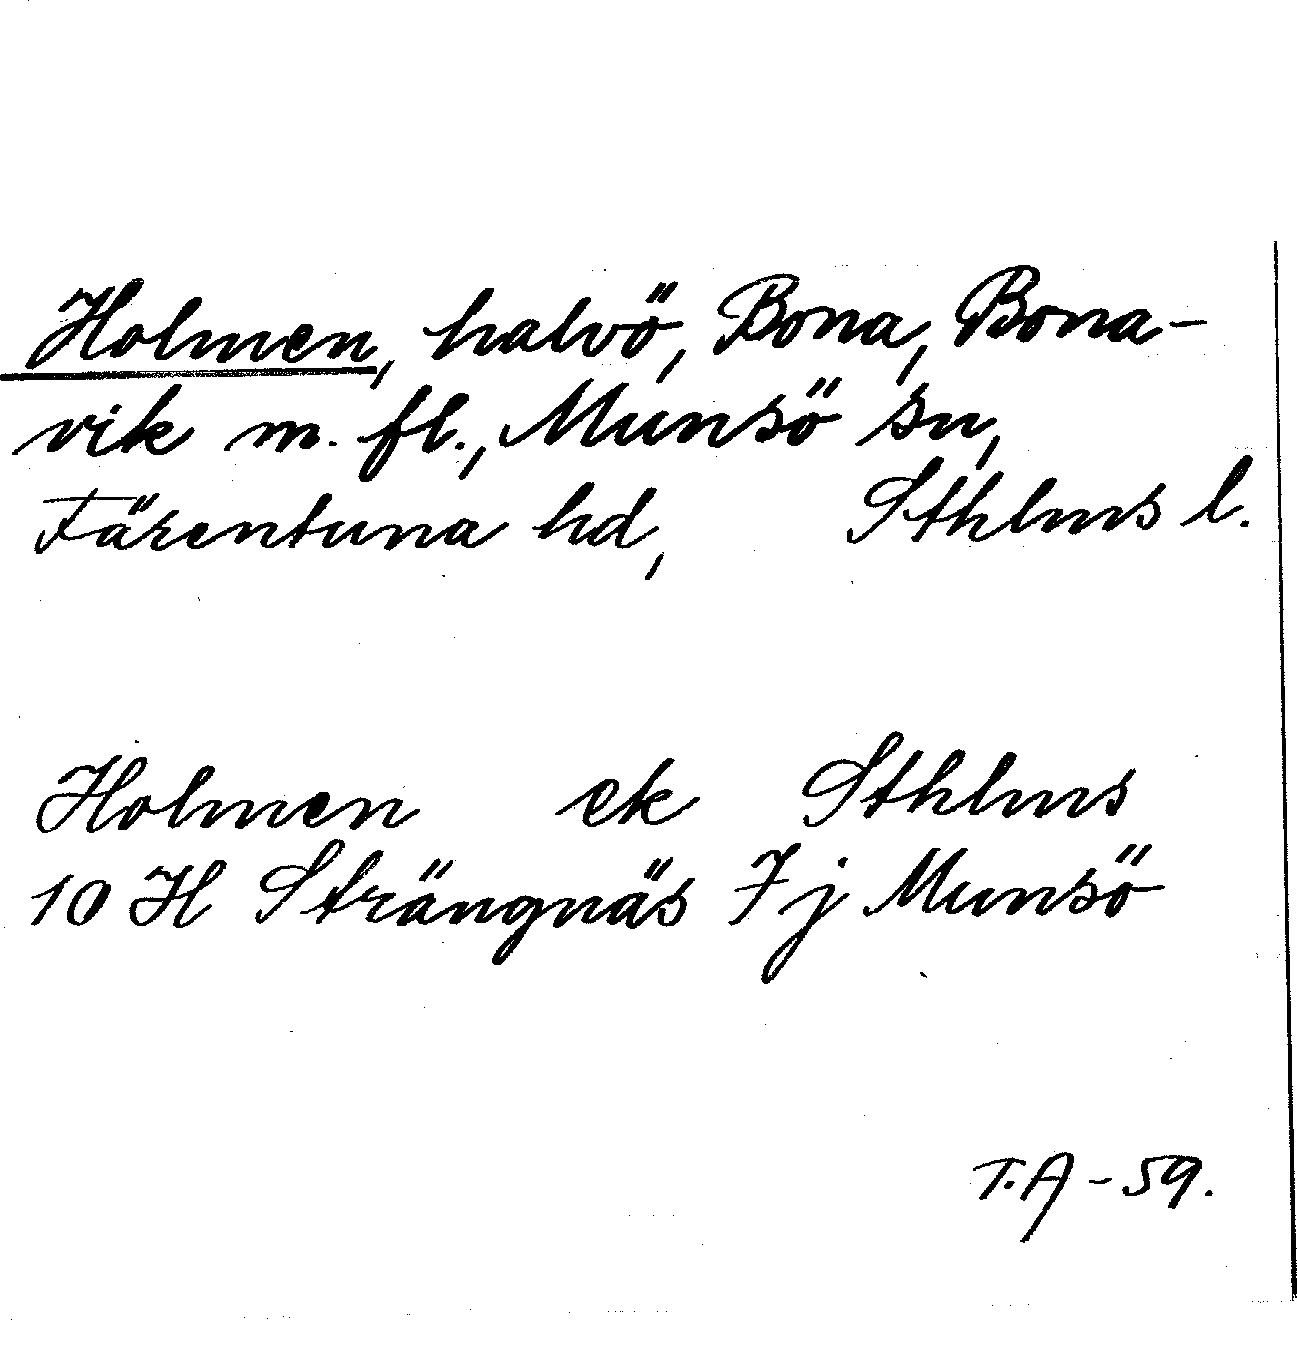 Holmen, halvö, Bona, Bona-
vik m. fl., Munsö sn,
Färentuna hd, Sthlms l.
Holmen ek Sthlms
10 H Strängnäs 7 j Munsö
T. A - 59.